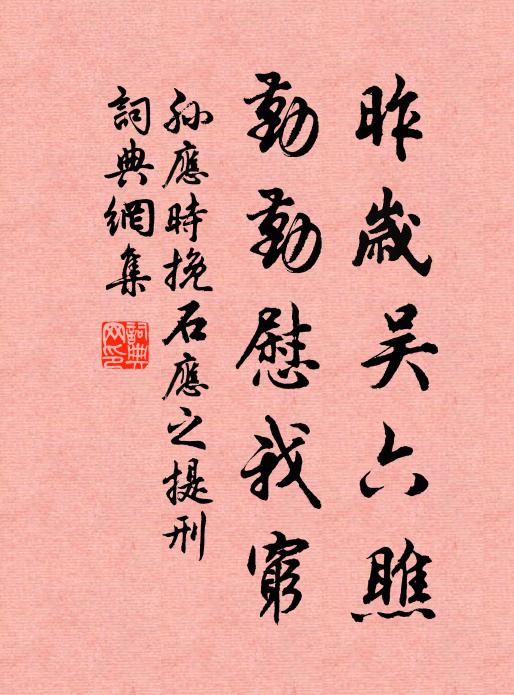 昨歲吴六瞧
勤勤慰我窮
孫應時挽石應之提刑
詞典網集
詞典网印